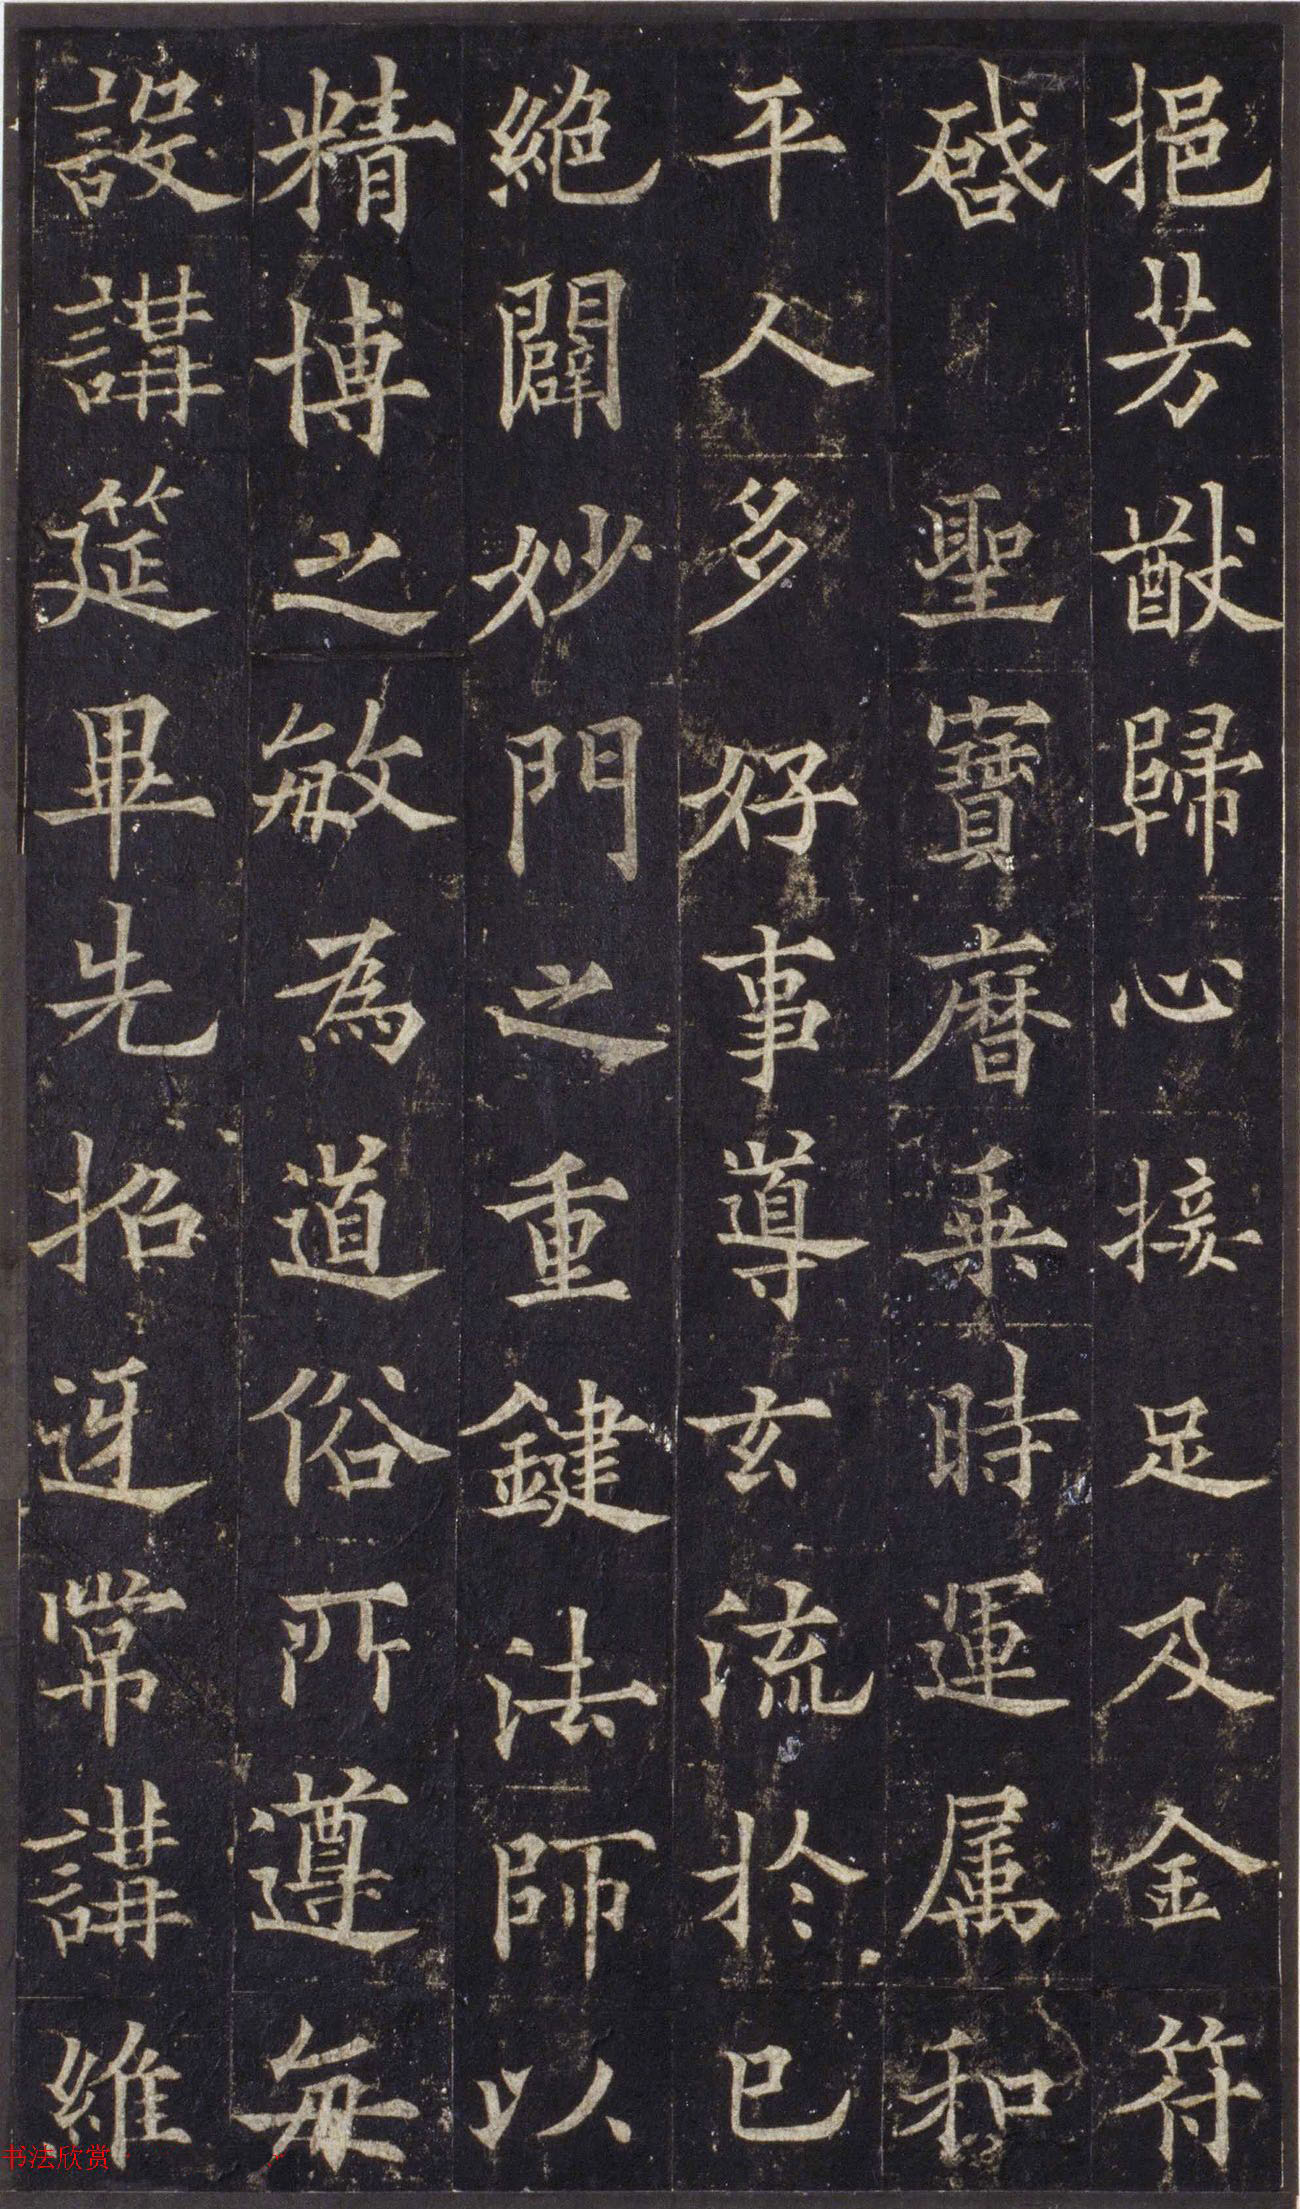 挹芳猷歸心接足及金符
啓聖寶曆乗時運属和
平人多好事導玄流於已
絶闢妙門之重鍵法師以
精博之敏為道俗所遵每
設講筵畢先招迓常講維
书法欣赏